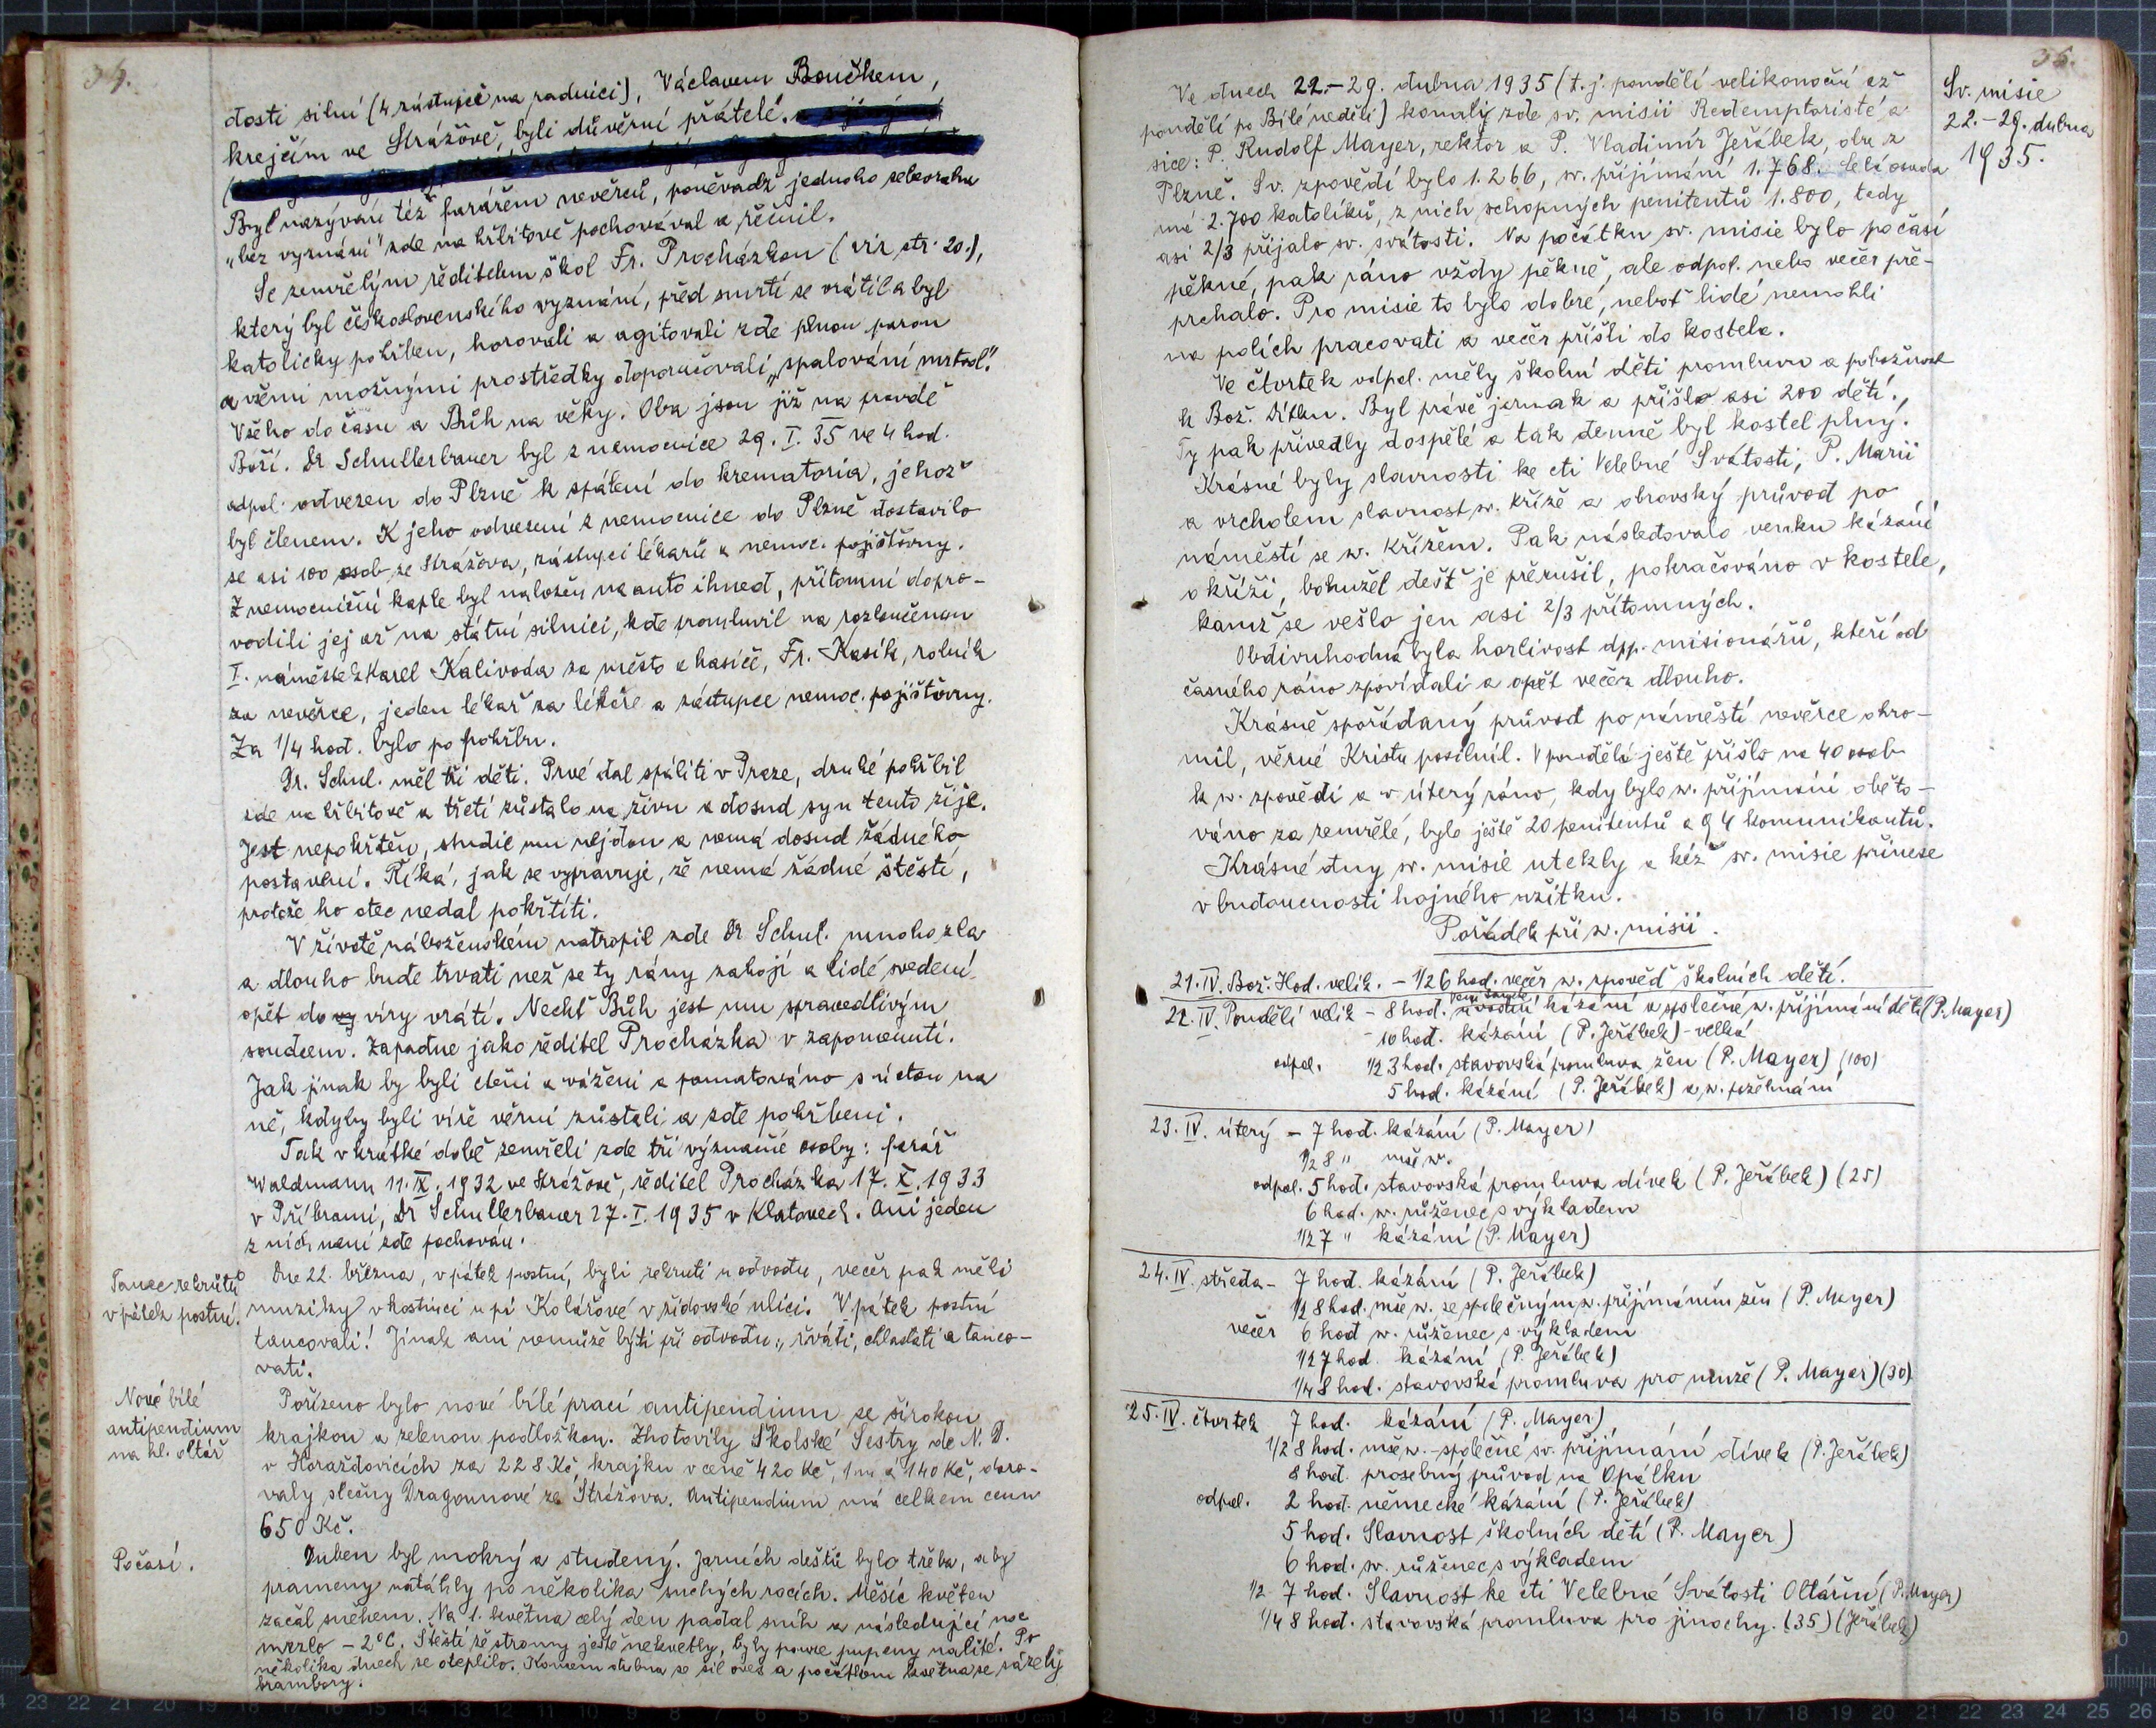 34.
dosti silní (4 zástupce na radnici), Václavem Boučkem,
krejčím ve Strážově, byli důvěrní přátelé.
Byl nazýván též farářem nevěrců, poněvadž jednoho sebevraha
„bez vyznání" zde na hřbitově pochovával a řečnil.
Se zemřelým ředitelem škol Fr. Procházkou (viz str. 20.),
který byl československého vyznání, před smrtí se vrátil a byl
katolicky pohřben, horovali a agitovali zde plnou parou
a všemi možnými prostředky doporučovali „spalování mrtvol".
Všeho do času a Bůh na věky. Oba jsou již na pravdě
Boží. Dr Schullerbauer byl z nemocnice 29. I. 35 ve 4 hod.
odpol. odvezen do Plzně k spálení do krematoria, jehož
byl členem. K jeho odvezení z nemocnice do Plzně dostavilo
se asi 100 osob ze Strážova, zástupci lékařů a nemoc. pojišťovny.
Z nemocniční kaple byl naložen na auto ihned, přítomní dopro-
vodili jej až na státní silnici, kde promluvil na rozloučenou
I. náměstek Karel Kalivoda za město a hasiče, Fr. Kasík, rolník
za nevěrce, jeden lékař za lékaře a zástupce nemoc. pojišťovny.
Za 1/4 hod. bylo po pohřbu.
Dr. Schul. měl tři děti. Prvé dal spáliti v Praze, druhé pohřbil
zde na hřbitově a třetí zůstalo na živu a dosud syn tento žije.
Jest nepokřtěn, studie mu nejdou a nemá dosud žádného
postavení. Říká, jak se vypravuje, že nemá žádné štěstí,
protože ho otec nedal pokřtíti.
V životě náboženském natropil zde Dr Schul. mnoho zla
a dlouho bude trvati než se ty rány zahojí a lidé svedení
opět do víry vrátí. Nechť Bůh jest mu spravedlivým
soudcem. Zapadne jako ředitel Procházka v zapomenutí.
Jak jinak by byli ctěni a váženi a pamatováno s úctou na
ně, kdyby byli víře věrni zůstali a zde pohřbeni.
Tak v krátké době zemřeli zde tři význačné osoby: farář
Waldmann 11. IX. 1932 ve Strážově, ředitel Procházka 17. X. 1933
v Příbrami, Dr Schullerbauer 27. I. 1935 v Klatovech. Ani jeden
z nich není zde pochován.
Tanec rekrutů
v pátek postní.
Dne 22. března, v pátek postní, byli rekruti u odvodu, večer pak měli
muziky v hostinci u pí Kolářové v židovské ulici. V pátek postní
tancovali! Jinak ani nemůže býti při odvodu: řváti, chlastati a tanco-
vati.
Nové bílé
antipendium
na hl. oltář
Pořízeno bylo nové bílé prací antipendium se širokou
krajkou a zelenou podložkou. Zhotovily Školské Sestry de N. D.
v Horažďovicích za 228 Kč, krajku v ceně 420 Kč, 1 m á 140 Kč, daro-
valy slečny Dragounové ze Strážova. Antipendium má celkem cenu
650 Kč.
Počasí.
Duben byl mokrý a studený. Jarních dešťů bylo třeba, aby
prameny natáhly po několika suchých rocích. Měsíc květen
začal sněhem. Na 1. května celý den padal sníh a následující noc
mrzlo – 2°C. Štěstí že stromy ještě nekvetly, byly pouze pupeny nalité. Po
několika dnech se oteplilo. Koncem dubna se sil oves a počátkem května se sázely
brambory.
35.
Sv. misie
22.–29. dubna
1935.
Ve dnech 22.–29. dubna 1935 (t. j. pondělí velikonoční až
pondělí po Bílé neděli) konaly zde sv. misii Redemptoristé, a
sice: P. Rudolf Mayer, rektor a P. Vladimír Jeřábek, oba z
Plzně. Sv. zpovědí bylo 1.266, sv. přijímání 1.768. Celá osada
má 2.700 katolíků, z nich schopných penitentů 1.800, tedy
asi 2/3 přijalo sv. svátosti. Na počátku sv. misie bylo počasí
pěkné, pak ráno vždy pěkně, ale odpol. nebo večer pře-
prchalo. Pro misie to bylo dobré, neboť lidé nemohli
na polích pracovati a večer přišli do kostela.
Ve čtvrtek odpol. měly školní děti promluvu a pobožnost
k Bož. Dítku. Byl právě jarmak a přišlo asi 200 dětí.
Ty pak přivedly dospělé a tak denně byl kostel plný.
Krásné byly slavnosti ke cti Velebné Svátosti, P. Marii
a vrcholem slavnost sv. kříže a obrovský průvod po
náměstí se sv. křížem. Pak následovalo venku kázání
o kříži, bohužel déšť je přerušil, pokračováno v kostele,
kamž se vešlo jen asi 2/3 přítomných.
Obdivuhodná byla horlivost dpp. misionářů, kteří od
časného rána zpovídali a opět večer dlouho.
Krásně spořádaný průvod po náměstí nevěrce ohro-
mil, věrné Kristu posilnil. V pondělí ještě přišlo na 40 osob
k sv. zpovědi a v úterý ráno, kdy bylo sv. přijímání oběto-
váno za zemřelé, bylo ještě 20 penitentů a 94 komunikantů.
Krásné dny sv. misie utekly a kéž sv. misie přinese
v budoucnosti hojného užitku.
Pořádek při sv. misii.
21. IV. Bož. Hod. velik. – 1/2 6 hod. večer sv. zpověď školních dětí.
22. IV. Pondělí velik – 8 hod. úvodní kázání a společné sv. přijímání dětí (P. Mayer)
– 10 hod. kázání (P. Jeřábek) – velká
odpol. 1/2 3 hod. stavovská promluva žen (P. Mayer) (100)
5 hod. kázání (P. Jeřábek) a sv. požehnání
23. IV. úterý – 7 hod. kázání (P. Mayer)
1/2 8 " mše sv.
odpol. 5 hod. stavovská promluva dívek (P. Jeřábek) (25)
6 hod. sv. růženec s výkladem
1/2 7 " kázání (P. Mayer)
24. IV. středa – 7 hod. kázání (P. Jeřábek)
1/2 8 hod. mše sv. se společným sv. přijímáním žen (P. Mayer)
večer 6 hod sv. růženec s výkladem
1/2 7 hod. kázání (P. Jeřábek)
1/4 8 hod. stavovská promluva pro muže (P. Mayer) (30)
25. IV. čtvrtek 7 hod. kázání (P. Mayer)
1/2 8 hod. mše sv. – společné sv. přijímání dívek (P. Jeřábek)
8 hod. prosebný průvod na Opálku
odpol. 2 hod. německé kázání (P. Jeřábek)
5 hod. Slavnost školních dětí (P. Mayer)
6 hod. sv. růženec s výkladem
1/2 7 hod. Slavnost ke cti Velebné Svátosti Oltářní (P. Mayer)
1/4 8 hod. stavovská promluva pro jinochy. (35) (Jeřábek)